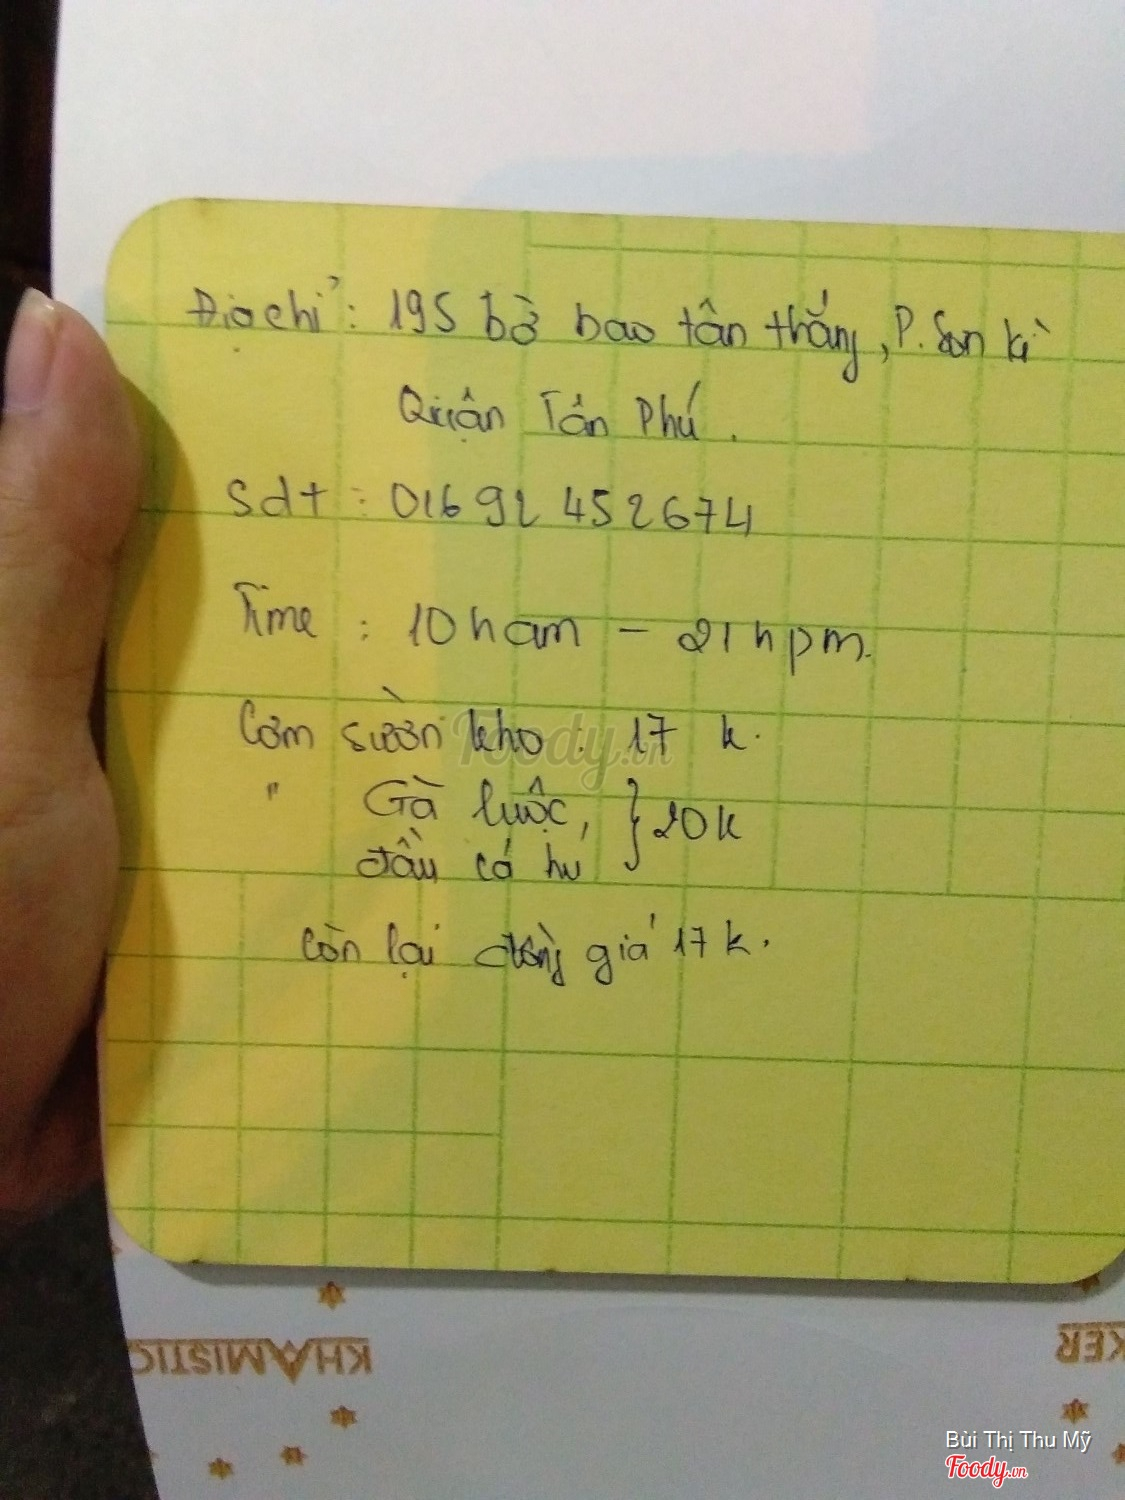 Địa chỉ: 195 bờ bao tân thắng, P. Sơn kì
Quận Tân Phú.
Sdt: 016 92 452674
Time: 10h am - 21h pm.
Cơm sườn kho: 17 k.
" Gà luộc, } 20k
đầu cá hú
Còn lại đồng giá 17k.
Foody.vn
KHAMISTIC
KER
Bùi Thị Thu Mỹ
Foody.vn